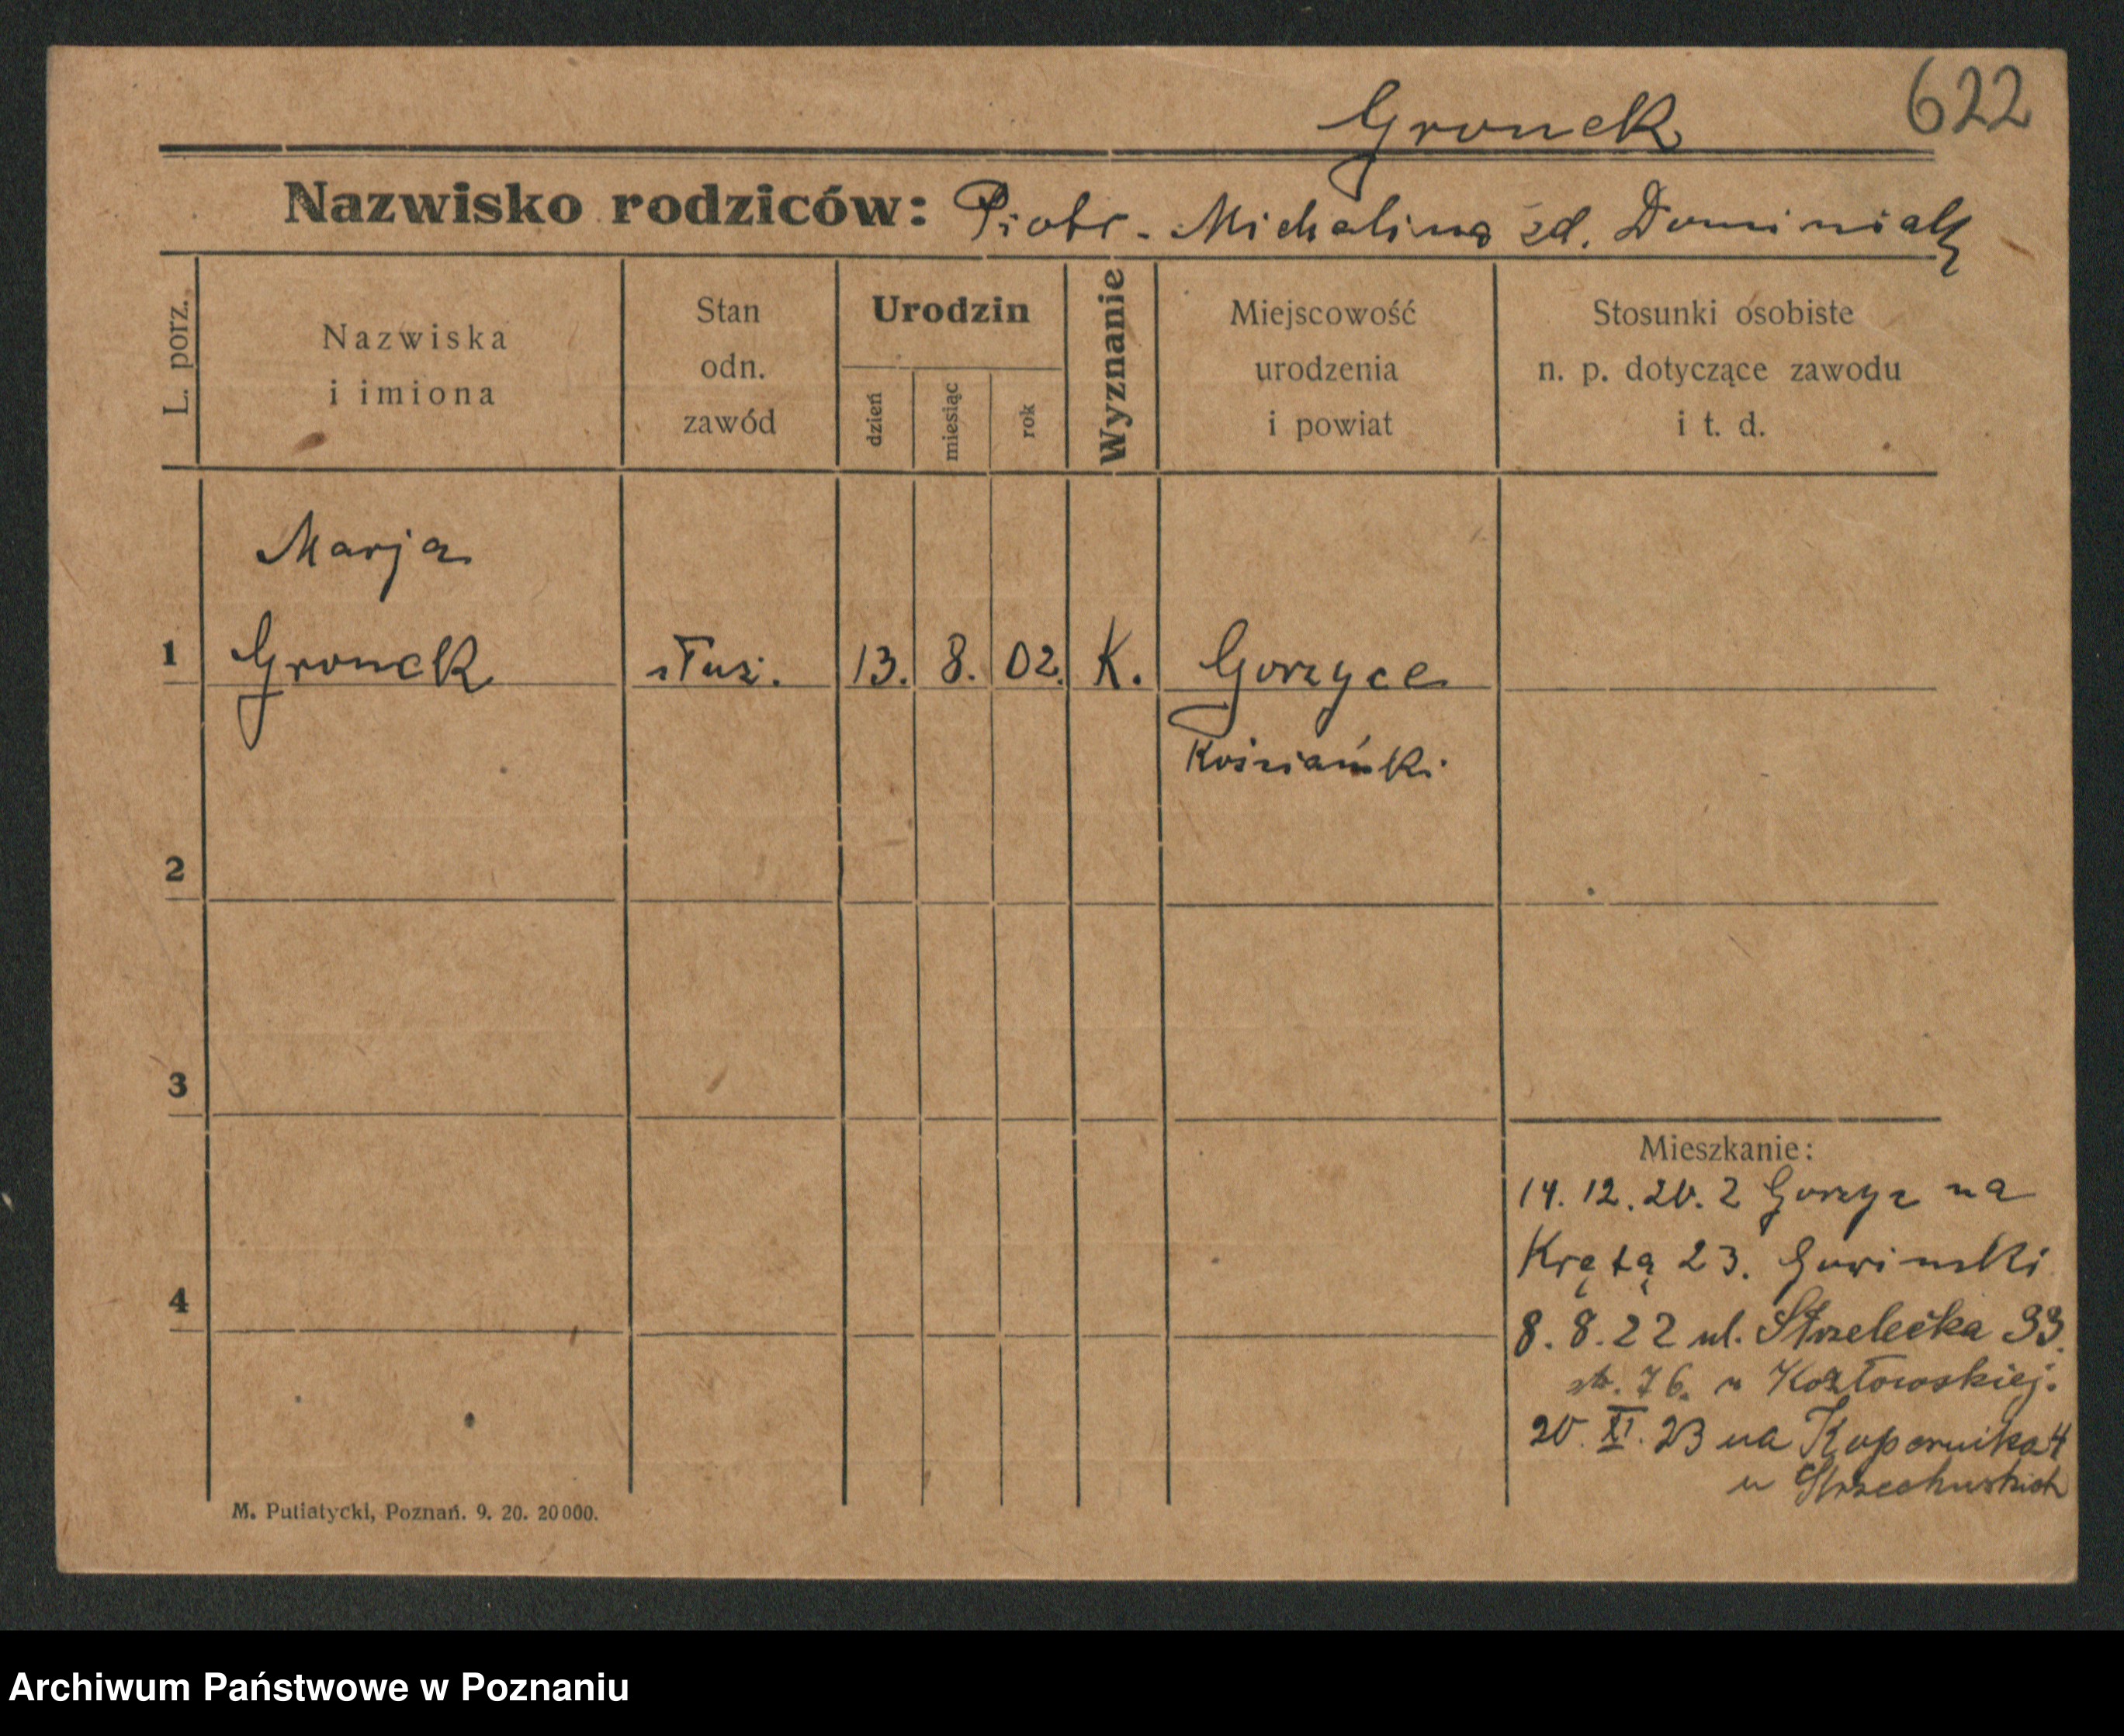 622
Gronek
Nazwisko rodziców: Piotr - Michalina zd. Dominiak
L. porz.
Nazwiska
i imiona
Stan
odn.
zawód
Urodzin
dzień
miesiąc
rok
Wyznanie
Miejscowość
urodzenia
i powiat
Stosunki osobiste
n. p. dotyczące zawodu
i t. d.
Marja
1 Gronek służ. 13. 8. 02. K. Gorzyce
Kościański
2
3
4
Mieszkanie:
14. 12. 20. z Gorzyc na
Krętą 23.
8. 8. 22 ul. Strzelecka 33.
76. u Kozłowskiej.
20. XI. 23 na Kopernika 4
u
M. Putiatycki, Poznań. 9. 20. 20000.
Archiwum Państwowe w Poznaniu